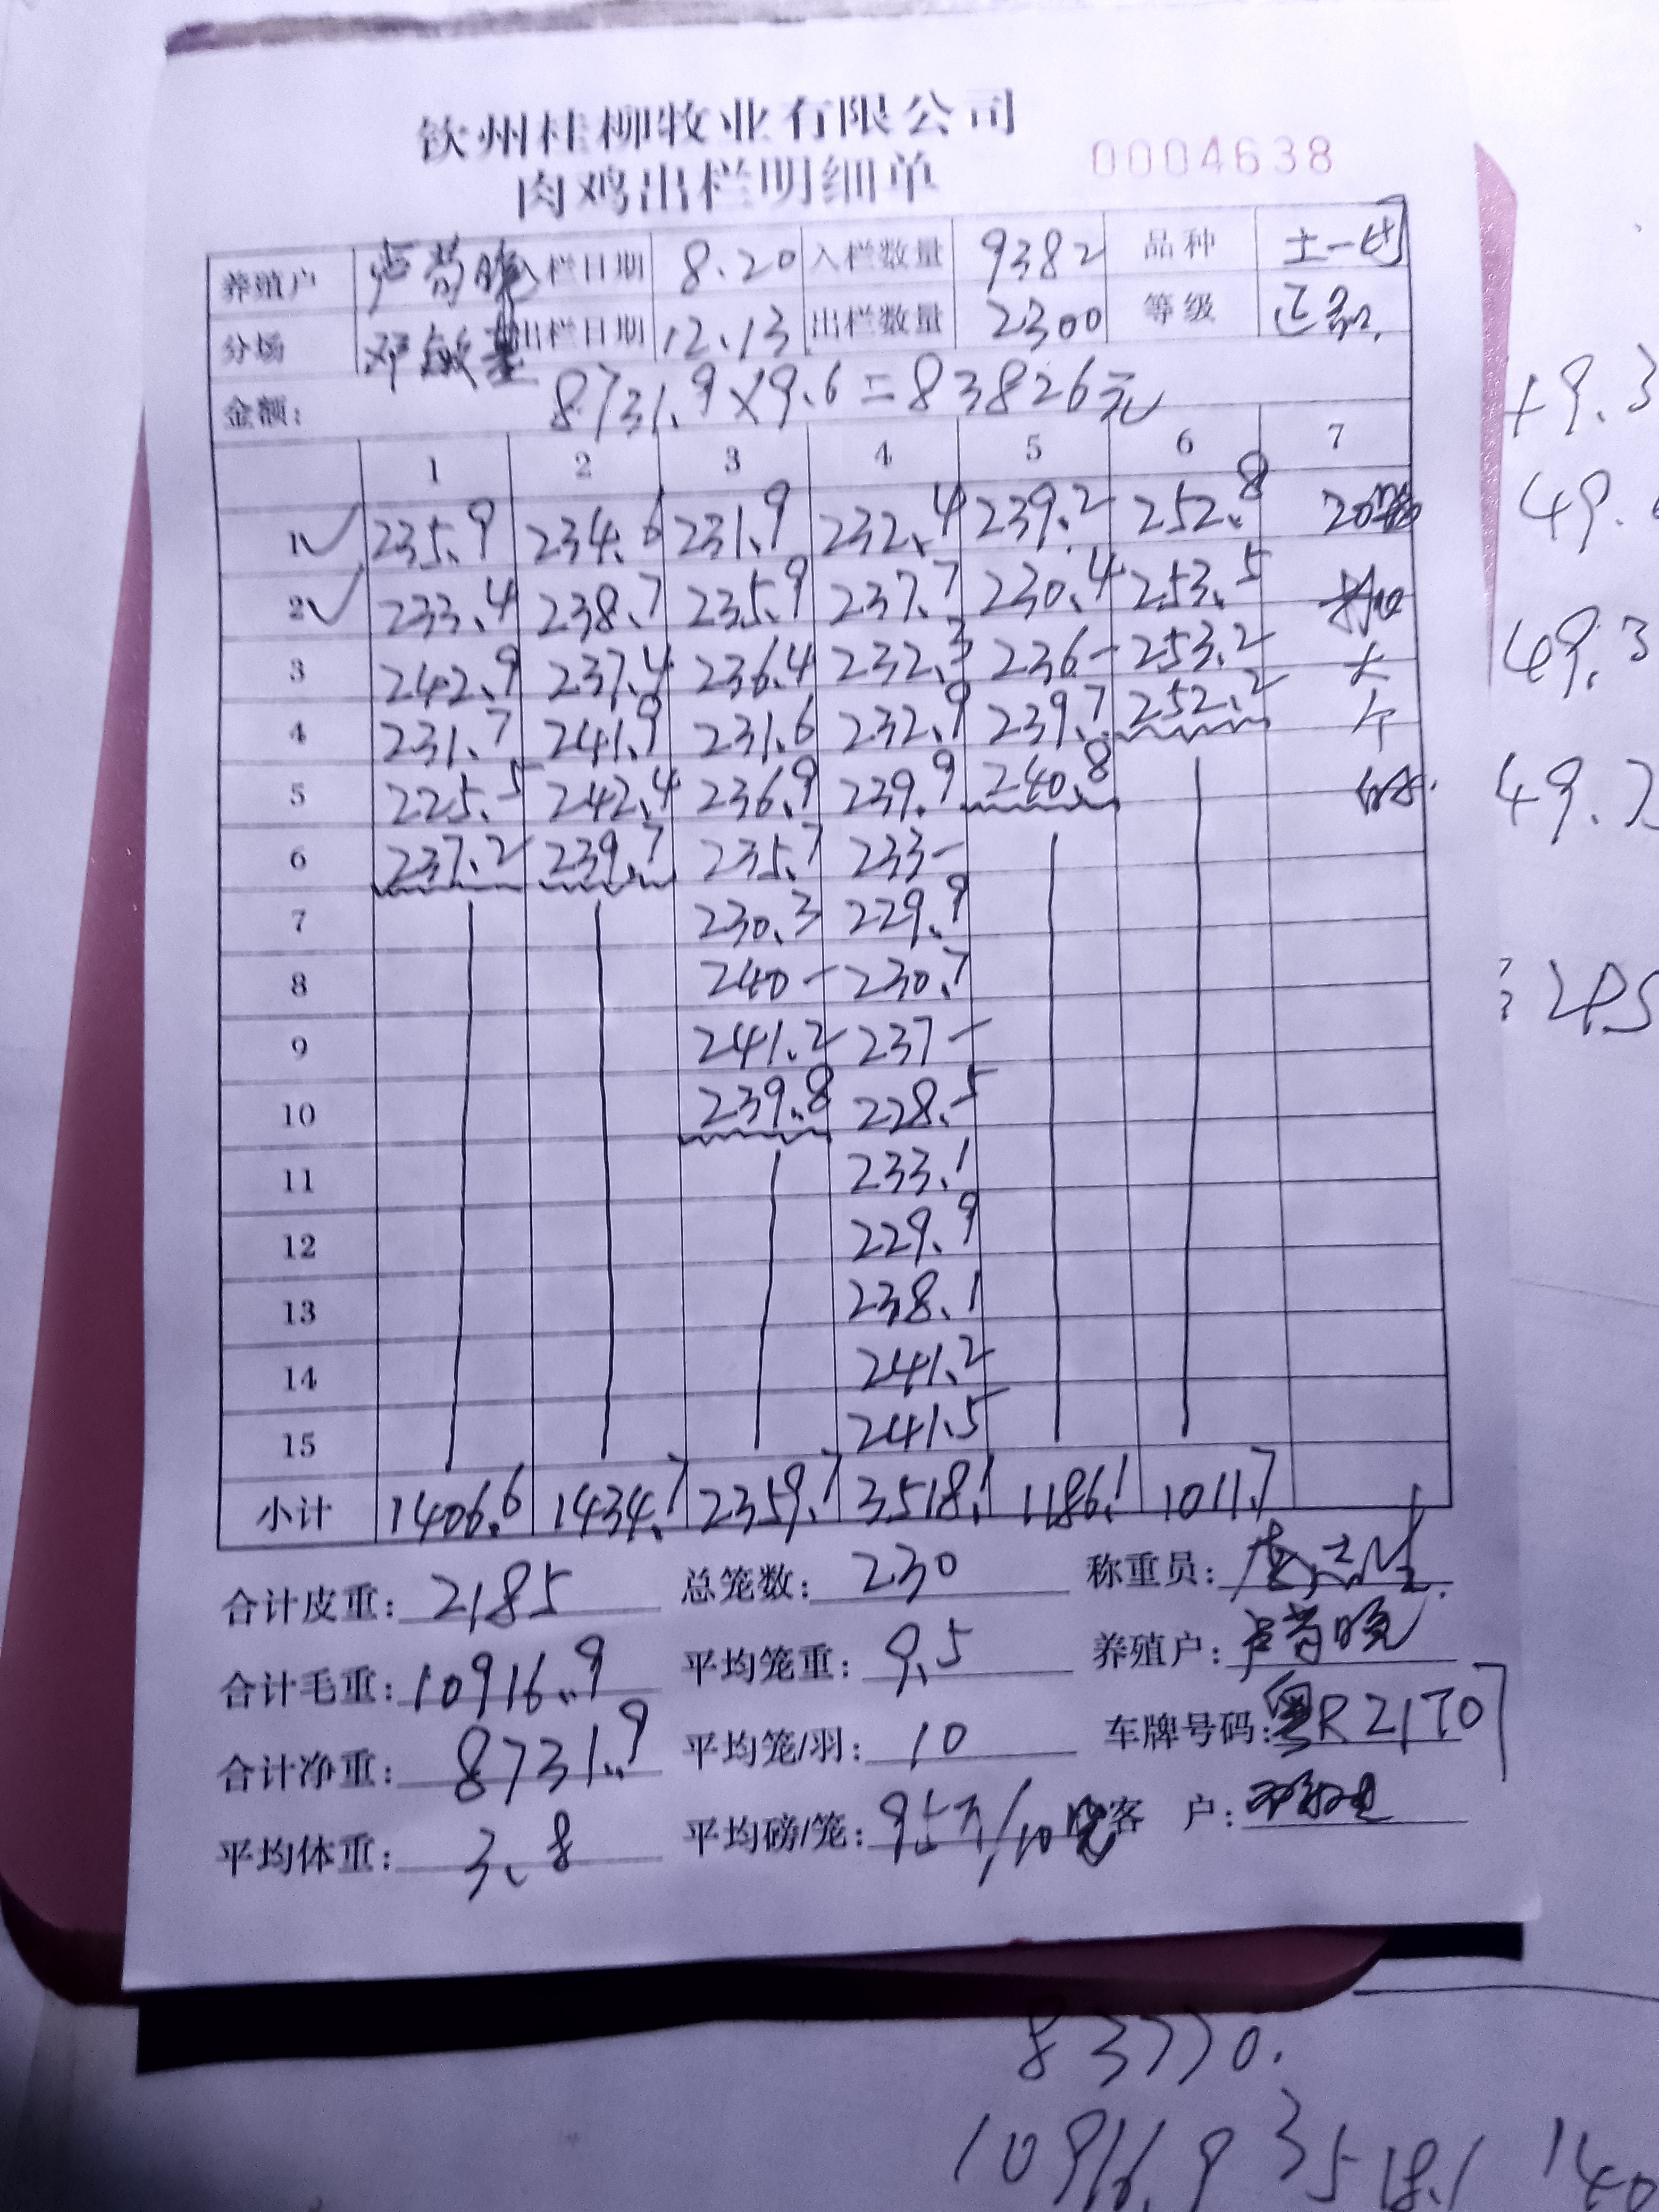 钦州桂柳牧业有限公司
肉鸡出栏明细单 0004638
养殖户 卢 晓 入栏日期 8.20 入栏数量 9382 品种 土一
分场 邓敏 出栏日期 12.13 出栏数量 2300 等级 正品
金额: 8731.9×9.6=83826元
1 2 3 4 5 6 7
1 ✓ 235.9 234.6 231.9 232.4 239.2 252.8 20
2 ✓ 233.4 238.7 235.9 237.7 230.4 253.5
3 242.9 237.4 236.4 232.3 236- 253.2 大
4 231.7 241.9 231.6 232.9 239.7 252.2 个
5 225.5 242.4 236.9 239.9 240.8
6 237.2 239.7 235.7 233-
7 230.3 229.9
8 240- 230.7
9 241.2 237-
10 239.8 228.5
11 233.1
12 229.9
13 238.1
14 241.2
15 241.5
小计 1406.6 1434.7 2359.7 3518.1 1186.1 1011.7
合计皮重: 2185 总笼数: 230 称重员:
合计毛重: 10916.9 平均笼重: 9.5 养殖户: 卢 晓
合计净重: 8731.9 平均笼/羽: 10 车牌号码: 粤R21T07
平均体重: 3.8 平均磅/笼: 客 户:
49.3
49.
49.3
49.7
83770.
10916.9 3518.1 140